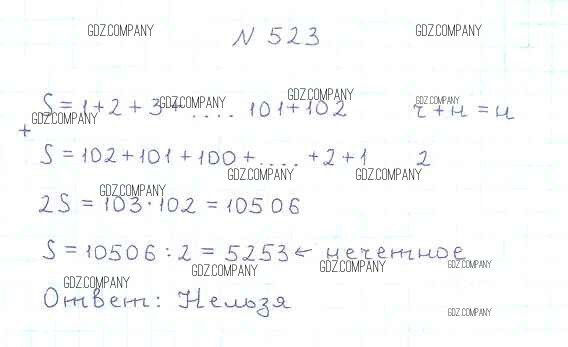 GDZ.COMPANY GDZ.COMPANY
N 523
S = 1 + 2 + 3 + .... 101 + 102 ч + н = н
GDZ.COMPANY GDZ.COMPANY GDZ.COMPANY
GDZ.COMPANY
+
S = 102 + 101 + 100 + .... + 2 + 1 2
GDZ.COMPANY GDZ.COMPANY
GDZ.COMPANY
2S = 103 · 102 = 10506
S = 10506 : 2 = 5253 ← нечетное
GDZ.COMPANY GDZ.COMPANY GDZ.COMPANY
GDZ.COMPANY
Ответ: Нельзя
GDZ.COMPANY